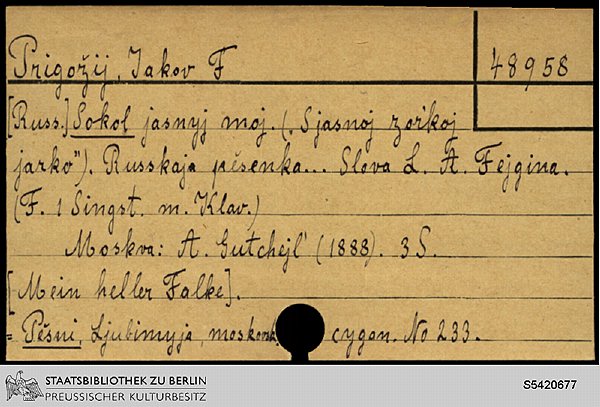 Prigožij, Jakov F
48958
[Russ.] Sokol jasnyj moj. (. Sjasnoj zoŕkoj
jarko"). Russkaja pěsenka... Slova L. A. Fejgina.
(F. 1 Singst. m. Klav.)
Moskva: A. Gutchejl' (1888). 3 S.
[Mein heller Falke].
= Pěsni, Ljubimyja, moskovsk. cygan. No 233.
STAATSBIBLIOTHEK ZU BERLIN
PREUSSISCHER KULTURBESITZ
S5420677